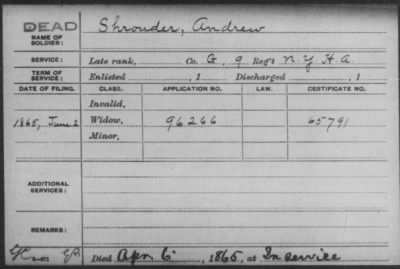 DEAD
NAME OF SOLDIER: Shrouder, Andrew
SERVICE: Late rank, Co. G, 9 Reg't N.Y. H.A.
TERM OF SERVICE: Enlisted , 1 Discharged , 1
DATE OF FILING. CLASS. APPLICATION NO. LAW. CERTIFICATE NO.
Invalid,
1865, June 2 Widow, 96266 65791
Minor,
ADDITIONAL SERVICES:
REMARKS:
Died Apr. 6, 1865, at In service